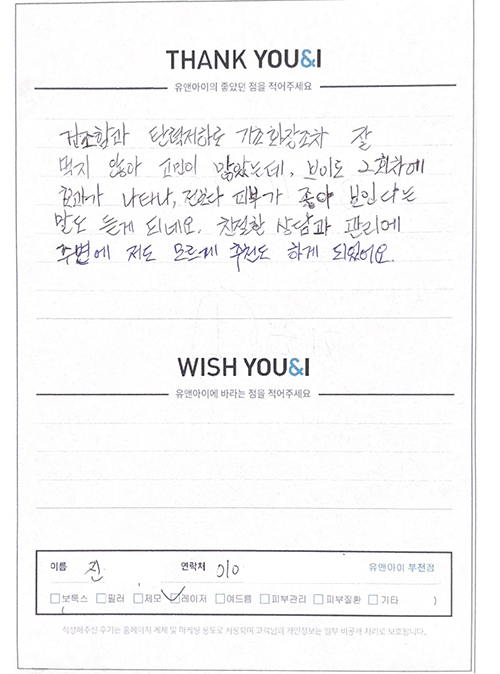 THANK YOU&I
유앤아이의 좋았던 점을 적어주세요
건조함과 탄력저하로 기초화장조차 잘
먹지 않아 고민이 많았는데, 브이도 2회차에
효과가 나타나, 전보다 피부가 좋아 보인다는
말도 듣게 되네요. 친절한 상담과 관리에
주변에 저도 모르게 추천도 하게 되었어요.
WISH YOU&I
유앤아이에 바라는 점을 적어주세요
이름 진 연락처 010 유앤아이 부천점
보톡스 필러 제모 레이저 여드름 피부관리 피부질환 기타 )
(
작성해주신 후기는 홈페이지 게재 및 마케팅 용도로 사용되며 고객님의 개인정보는 일부 비공개 처리로 보호됩니다.